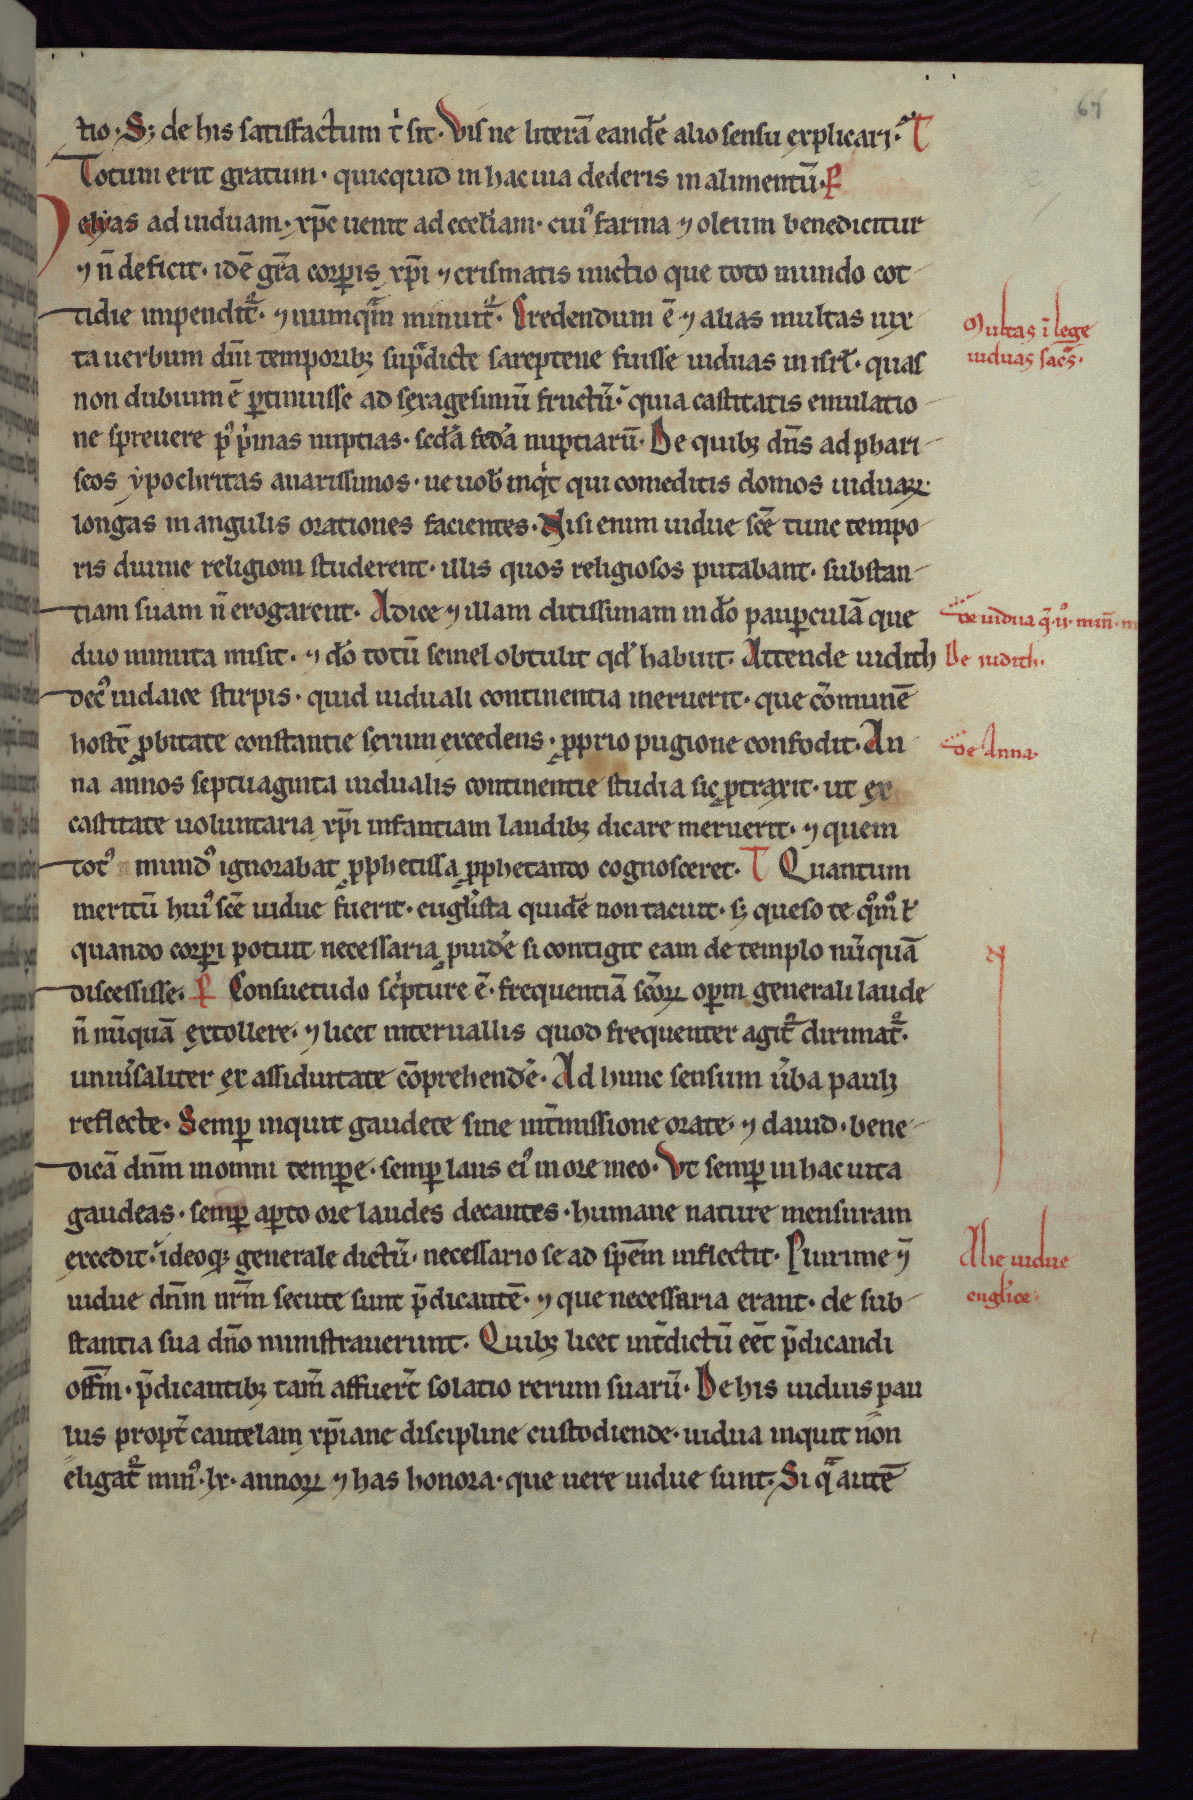 tio. Sꝫ de his satisfactum t̉ sit. Vis ne literā eandē alio sensu explicari. T
Totum erit gratum. quicquid in hac uia dederis in alimentū. P
elyas ad uiduam. xp̄c uenit ad eccl'iam. cui᾽ farina ⁊ oleum benedicitur
⁊ n̄ deficit. idē gr̄a corꝑis xp̄i ⁊ crismatis unctio que toto mundo cot
tidie impendit᷑. ⁊ numqͣm minuit᷑. Credendum ē ⁊ alias multas iux
ta uerbum dn̄i temporibꝫ supͣdicte sareptene fuisse uiduas in isrł. quas
non dubium ē ꝑtinuisse ad sexagesimū fructū. quia castitatis emulatio
ne spreuere p᾽ p̉mas nuptias. scd̄a fed̄a nuptiarū. De quibꝫ dn̄s ad phari
seos ypochritas auarissimos. ue uob̄ inqͥt qui comeditis domos uiduaꝝ
longas in angulis orationes facientes. Nisi enim uidue sc̄e tunc tempo
ris diuine religioni studerent. illis quos religiosos putabant. substan
tiam suam n̄ erogarent. Adice ⁊ illam ditissimam in dō pauꝑculā que
duo minuta misit. ⁊ dō totū semel obtulit qd̓ habuit. Attende iudith
dec᾽ iudaice stirpis. quid uiduali continentia meruerit. que cōmunē
hostē ꝓbitate constantie sexum excedens. ꝓprio pugione confodit. An
na annos septuaginta uidualis continentie studia sic ꝓtraxit. ut ex
castitate uoluntaria xp̄i infantiam laudibꝫ dicare meruerit. ⁊ quem
tot᾽ mund᾽ ignorabat ꝓphetissa ꝓphetando cognosceret. T Quantum
meritū hui᾽ sc̄e uidue fuerit. eug̓lista quidē non tacuit. sꝫ queso te qͦmͦ ł
quando corꝑi potuit necessaria ꝓuidē si contigit eam de templo nūquā
discessisse. P Consuetudo sc̉pture ē. frequentiā sc̄oꝝ oꝑm generali laude
n̄ nūquā extollere. ⁊ licet interuallis quod frequenter agit᷑ dirimat᷑.
uniu̓saliter ex assiduitate cōprehendē. Ad hunc sensum u̓ba pauli
reflecte. Semꝑ inquit gaudete sine int̓missione orate. ⁊ dauid. bene
dicā dn̄m in omni tempe. semꝑ laus ei᾽ in ore meo. Vt semꝑ in hac uita
gaudeas. semꝑ aꝑto ore laudes decantes. humane nature mensuram
excedit. ideoqꝫ generale dictū. necessario se ad sp̄em inflectit. Plurime ⁊̄
uidue dn̄m nr̄m secute sunt p̄dicantē. ⁊ que necessaria erant. de sub
stantia sua dn̄o ministrauerunt. Quibꝫ licet int̓dictū eēt p̄dicandi
offm̄. p̄dicantibꝫ tam̄ affuer̄t solatio rerum suarū. De his uiduis pau
lus propt̓ cautelam xp̄iane discipline custodiende. uidua inquit non
eligat᷑ min᾽. lx. annoꝝ ⁊ has honora. que uere uidue sunt. Si qͣ autē
Multas ī lege
uiduas sac̄s.
de uidua
De iudith.
de Anna.
Alie uidue
eug̓lice.
67